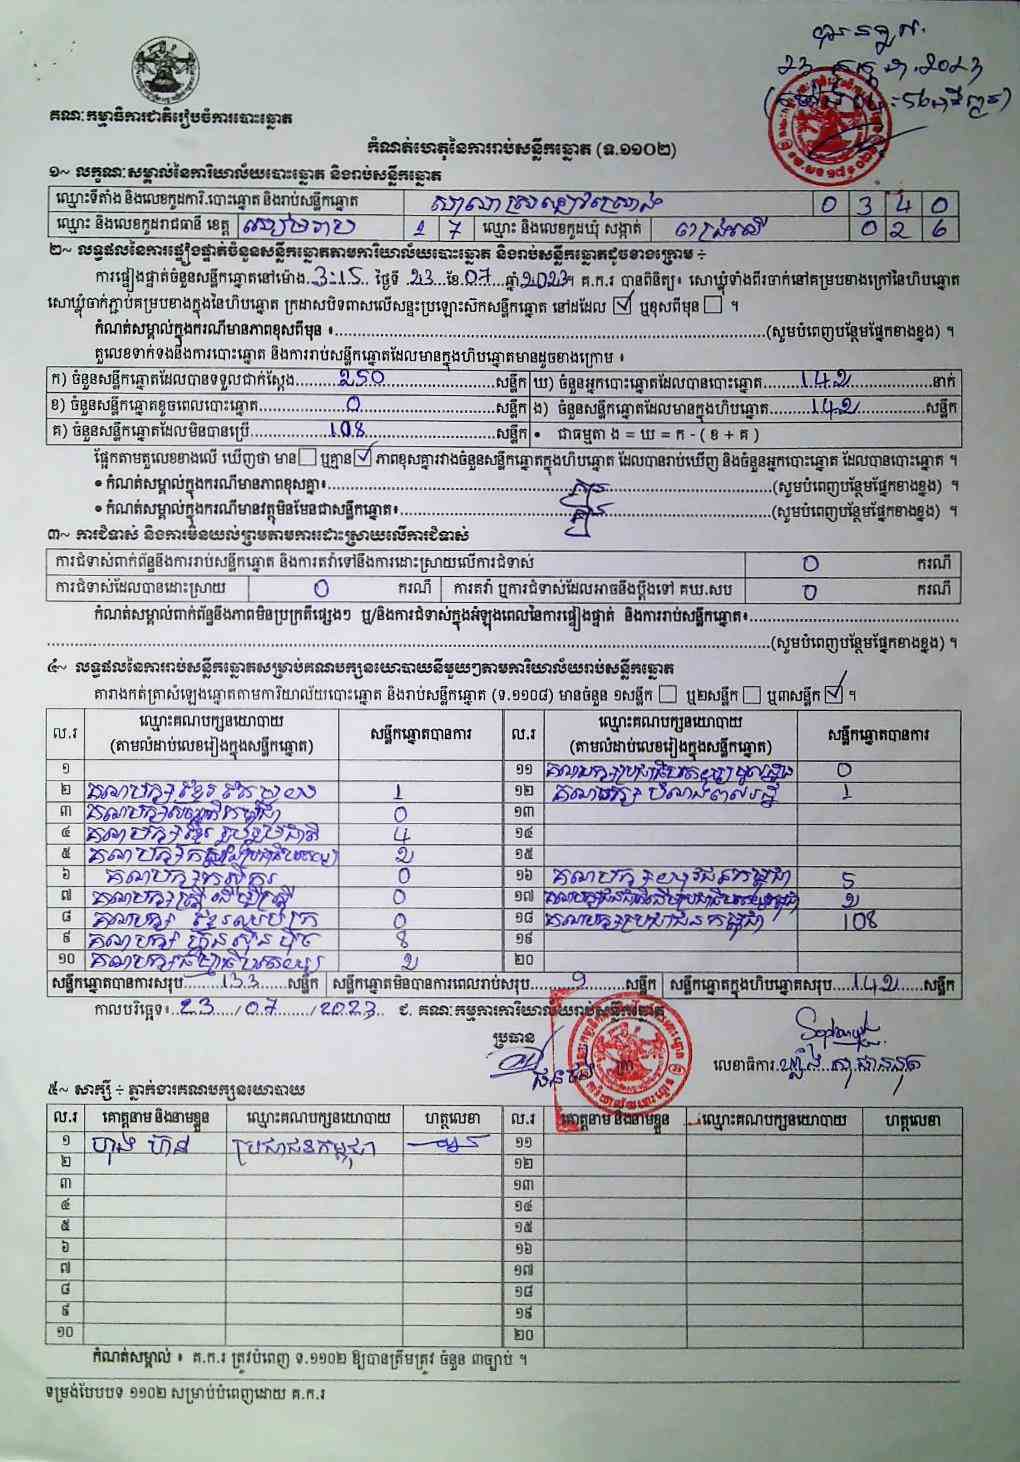 គណៈកម្មាធិការជាតិរៀបចំការបោះឆ្នោត
កំណត់ហេតុនៃការរាប់សន្លឹកឆ្នោត (ទ.១១០២)
១~ លក្ខណៈសម្គាល់នៃការិយាល័យបោះឆ្នោត និងរាប់សន្លឹកឆ្នោត
ឈ្មោះទីតាំង និងលេខកូដការិ.បោះឆ្នោត និងរាប់សន្លឹកឆ្នោត 0 3 4 0
ឈ្មោះ និងលេខកូដរាជធានី ខេត្ត សៀមរាប 1 7 ឈ្មោះ និងលេខកូដឃុំ សង្កាត់ 0 2 6
២~ លទ្ធផលនៃការផ្ទៀងផ្ទាត់ចំនួនសន្លឹកឆ្នោតតាមការិយាល័យបោះឆ្នោត និងរាប់សន្លឹកឆ្នោតដូចខាងក្រោម ÷
ការផ្ទៀងផ្ទាត់ចំនួនសន្លឹកឆ្នោតនៅម៉ោង 3:15 ថ្ងៃទី 23 ខែ 07 ឆ្នាំ 2023 ។ គ.ក.រ បានពិនិត្យ៖ សោឃ្លុំទាំងពីរចាក់នៅគម្របខាងក្រៅនៃហិបឆ្នោត
សោឃ្លុំចាក់ភ្ជាប់គម្របខាងក្នុងនៃហិបឆ្នោត ក្រដាសបិទពាសលើសន្ទះប្រឡោះស៊កសន្លឹកឆ្នោត នៅដដែល ☑ ឬខុសពីមុន ☐ ។
កំណត់សម្គាល់ក្នុងករណីមានភាពខុសពីមុន ៖ (សូមបំពេញបន្ថែមផ្នែកខាងខ្នង) ។
តួលេខទាក់ទងនឹងការបោះឆ្នោត និងការរាប់សន្លឹកឆ្នោតដែលមានក្នុងហិបឆ្នោតមានដូចខាងក្រោម ៖
ក) ចំនួនសន្លឹកឆ្នោតដែលបានទទួលជាក់ស្តែង 250 សន្លឹក ឃ) ចំនួនអ្នកបោះឆ្នោតដែលបានបោះឆ្នោត 142 នាក់
ខ) ចំនួនសន្លឹកឆ្នោតខូចពេលបោះឆ្នោត 0 សន្លឹក ង) ចំនួនសន្លឹកឆ្នោតដែលមានក្នុងហិបឆ្នោត 142 សន្លឹក
គ) ចំនួនសន្លឹកឆ្នោតដែលមិនបានប្រើ 108 សន្លឹក • ជាធម្មតា ង = ឃ = ក - ( ខ + គ )
ផ្អែកតាមតួលេខខាងលើ ឃើញថា មាន ☐ ឬគ្មាន ☑ ភាពខុសគ្នារវាងចំនួនសន្លឹកឆ្នោតក្នុងហិបឆ្នោត ដែលបានរាប់ឃើញ និងចំនួនអ្នកបោះឆ្នោត ដែលបានបោះឆ្នោត ។
• កំណត់សម្គាល់ក្នុងករណីមានភាពខុសគ្នា៖ គ្មាន (សូមបំពេញបន្ថែមផ្នែកខាងខ្នង) ។
• កំណត់សម្គាល់ក្នុងករណីមានវត្ថុមិនមែនជាសន្លឹកឆ្នោត៖ គ្មាន (សូមបំពេញបន្ថែមផ្នែកខាងខ្នង) ។
៣~ ការជំទាស់ និងការមិនយល់ព្រមតាមការដោះស្រាយលើការជំទាស់
ការជំទាស់ពាក់ព័ន្ធនឹងការរាប់សន្លឹកឆ្នោត និងការតវ៉ាទៅនឹងការដោះស្រាយលើការជំទាស់ 0 ករណី
ការជំទាស់ដែលបានដោះស្រាយ 0 ករណី ការតវ៉ា ឬការជំទាស់ដែលអាចនឹងប្តឹងទៅ គឃ.សប 0 ករណី
កំណត់សម្គាល់ពាក់ព័ន្ធនឹងភាពមិនប្រក្រតីផ្សេងៗ ឬ/និងការជំទាស់ក្នុងអំឡុងពេលនៃការផ្ទៀងផ្ទាត់ និងការរាប់សន្លឹកឆ្នោត៖
(សូមបំពេញបន្ថែមផ្នែកខាងខ្នង) ។
៤~ លទ្ធផលនៃការរាប់សន្លឹកឆ្នោតសម្រាប់គណបក្សនយោបាយនីមួយៗតាមការិយាល័យរាប់សន្លឹកឆ្នោត
តារាងកត់ត្រាសំឡេងឆ្នោតតាមការិយាល័យបោះឆ្នោត និងរាប់សន្លឹកឆ្នោត (ទ.១១០៨) មានចំនួន ១សន្លឹក ☐ ឬ២សន្លឹក ☐ ឬ៣សន្លឹក ☑ ។
ល.រ ឈ្មោះគណបក្សនយោបាយ (តាមលំដាប់លេខរៀងក្នុងសន្លឹកឆ្នោត) សន្លឹកឆ្នោតបានការ ល.រ ឈ្មោះគណបក្សនយោបាយ (តាមលំដាប់លេខរៀងក្នុងសន្លឹកឆ្នោត) សន្លឹកឆ្នោតបានការ
១ ១១ គណបក្ស 0
២ គណបក្សខ្មែរ 1 ១២ គណបក្ស 1
៣ គណបក្ស 0 ១៣
៤ គណបក្សខ្មែររួបរួមជាតិ 4 ១៤
៥ គណបក្ស 2 ១៥
៦ គណបក្សកសិករ 0 ១៦ គណបក្សយុវជនកម្ពុជា 5
៧ គណបក្សស្ត្រីដើម្បីស្ត្រី 0 ១៧ គណបក្ស 2
៨ គណបក្ស ខ្មែរឈប់ក្រ 0 ១៨ គណបក្សប្រជាជនកម្ពុជា 108
៩ គណបក្ស ហ៊្វុនស៊ិនប៉ិច 8 ១៩
១០ គណបក្សធម្មាធិបតេយ្យ 2 ២០
សន្លឹកឆ្នោតបានការសរុប 133 សន្លឹក សន្លឹកឆ្នោតមិនបានការពេលរាប់សរុប 9 សន្លឹក សន្លឹកឆ្នោតក្នុងហិបឆ្នោតសរុប 142 សន្លឹក
កាលបរិច្ឆេទ៖ 23/07/2023 ជ. គណៈកម្មការការិយាល័យរាប់សន្លឹកឆ្នោត
ប្រធាន
លេខាធិការ
៥~ សាក្សី ÷ ភ្នាក់ងារគណបក្សនយោបាយ
ល.រ គោត្តនាម និងនាមខ្លួន ឈ្មោះគណបក្សនយោបាយ ហត្ថលេខា ល.រ គោត្តនាម និងនាមខ្លួន ឈ្មោះគណបក្សនយោបាយ ហត្ថលេខា
១ ប្រជាជនកម្ពុជា ១១
២ ១២
៣ ១៣
៤ ១៤
៥ ១៥
៦ ១៦
៧ ១៧
៨ ១៨
៩ ១៩
១០ ២០
កំណត់សម្គាល់ ៖ គ.ក.រ ត្រូវបំពេញ ទ.១១០២ ឱ្យបានត្រឹមត្រូវ ចំនួន ៣ច្បាប់ ។
ទម្រង់បែបបទ ១១០២ សម្រាប់បំពេញដោយ គ.ក.រ